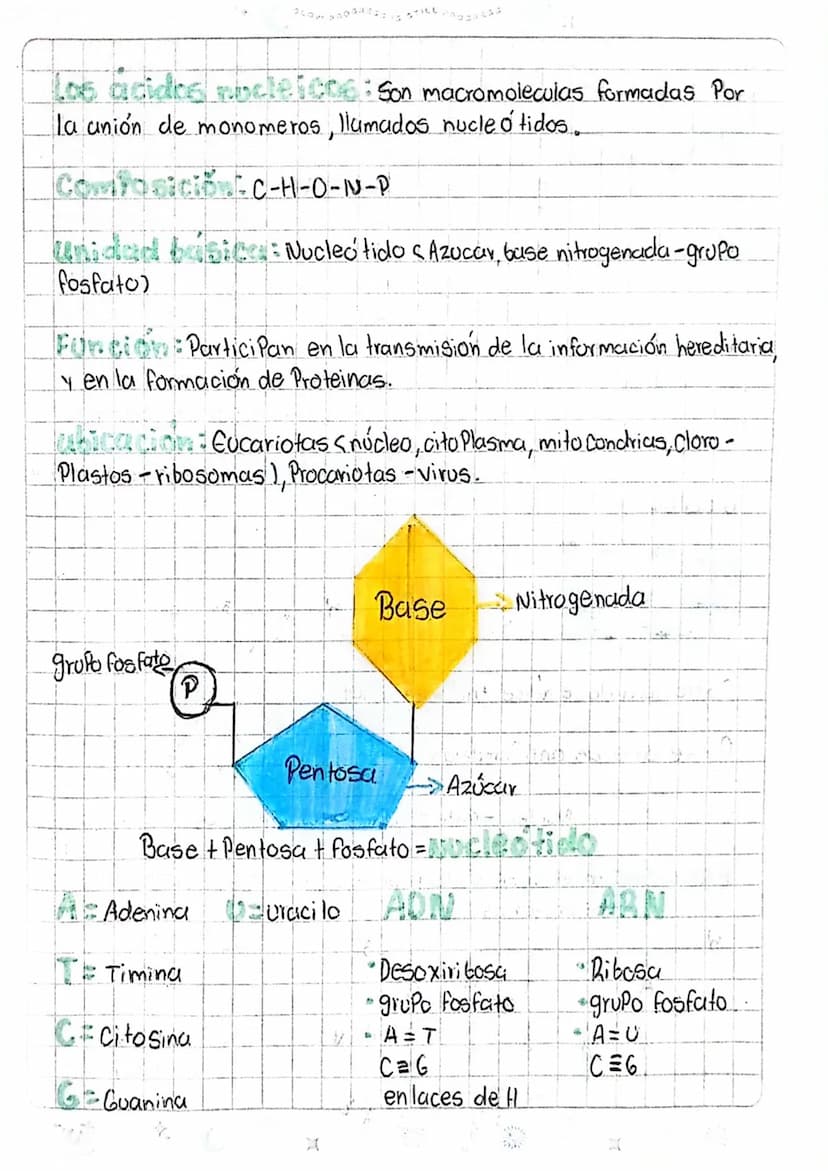 SLOW PROGRESS IS STILL PROGRESS
Los ácidos nucleicos: Son macromoleculas formadas Por
la unión de monomeros, llamados nucleótidos.
Composición: C-H-O-N-P
Unidad básica: Nucleótido (Azucar, base nitrogenada - grupo
fosfato)
Función: Participan en la transmisión de la información hereditaria,
y en la formación de Proteinas.
Ubicación: Eucariotas (núcleo, citoPlasma, mitocondrias, Cloro-
Plastos - ribosomas), Procariotas - Virus.
Base
Nitrogenada
grupo fosfato
P
Pentosa
Azúcar
Base + Pentosa + fosfato = nucleótido
A = Adenina U = uracilo ADN ARN
T = Timina • Desoxiribosa • Ribosa
• grupo fosfato • grupo fosfato
C = Citosina • A = T • A = U
C ≡ G C ≡ G
G = Guanina enlaces de H